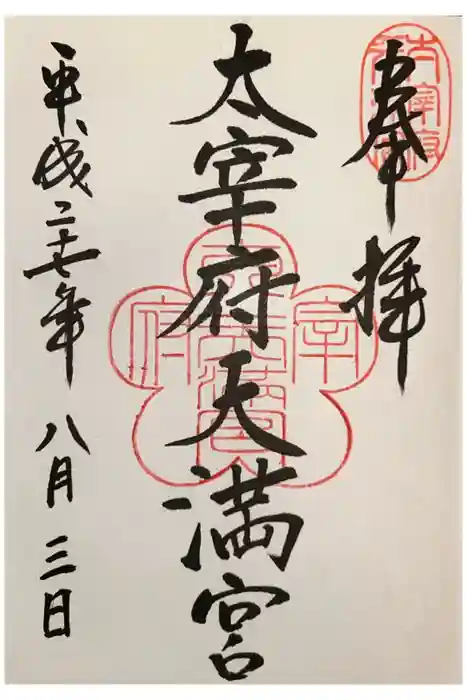 奉拝
太宰府天満宮
平成二十七年 八月三日